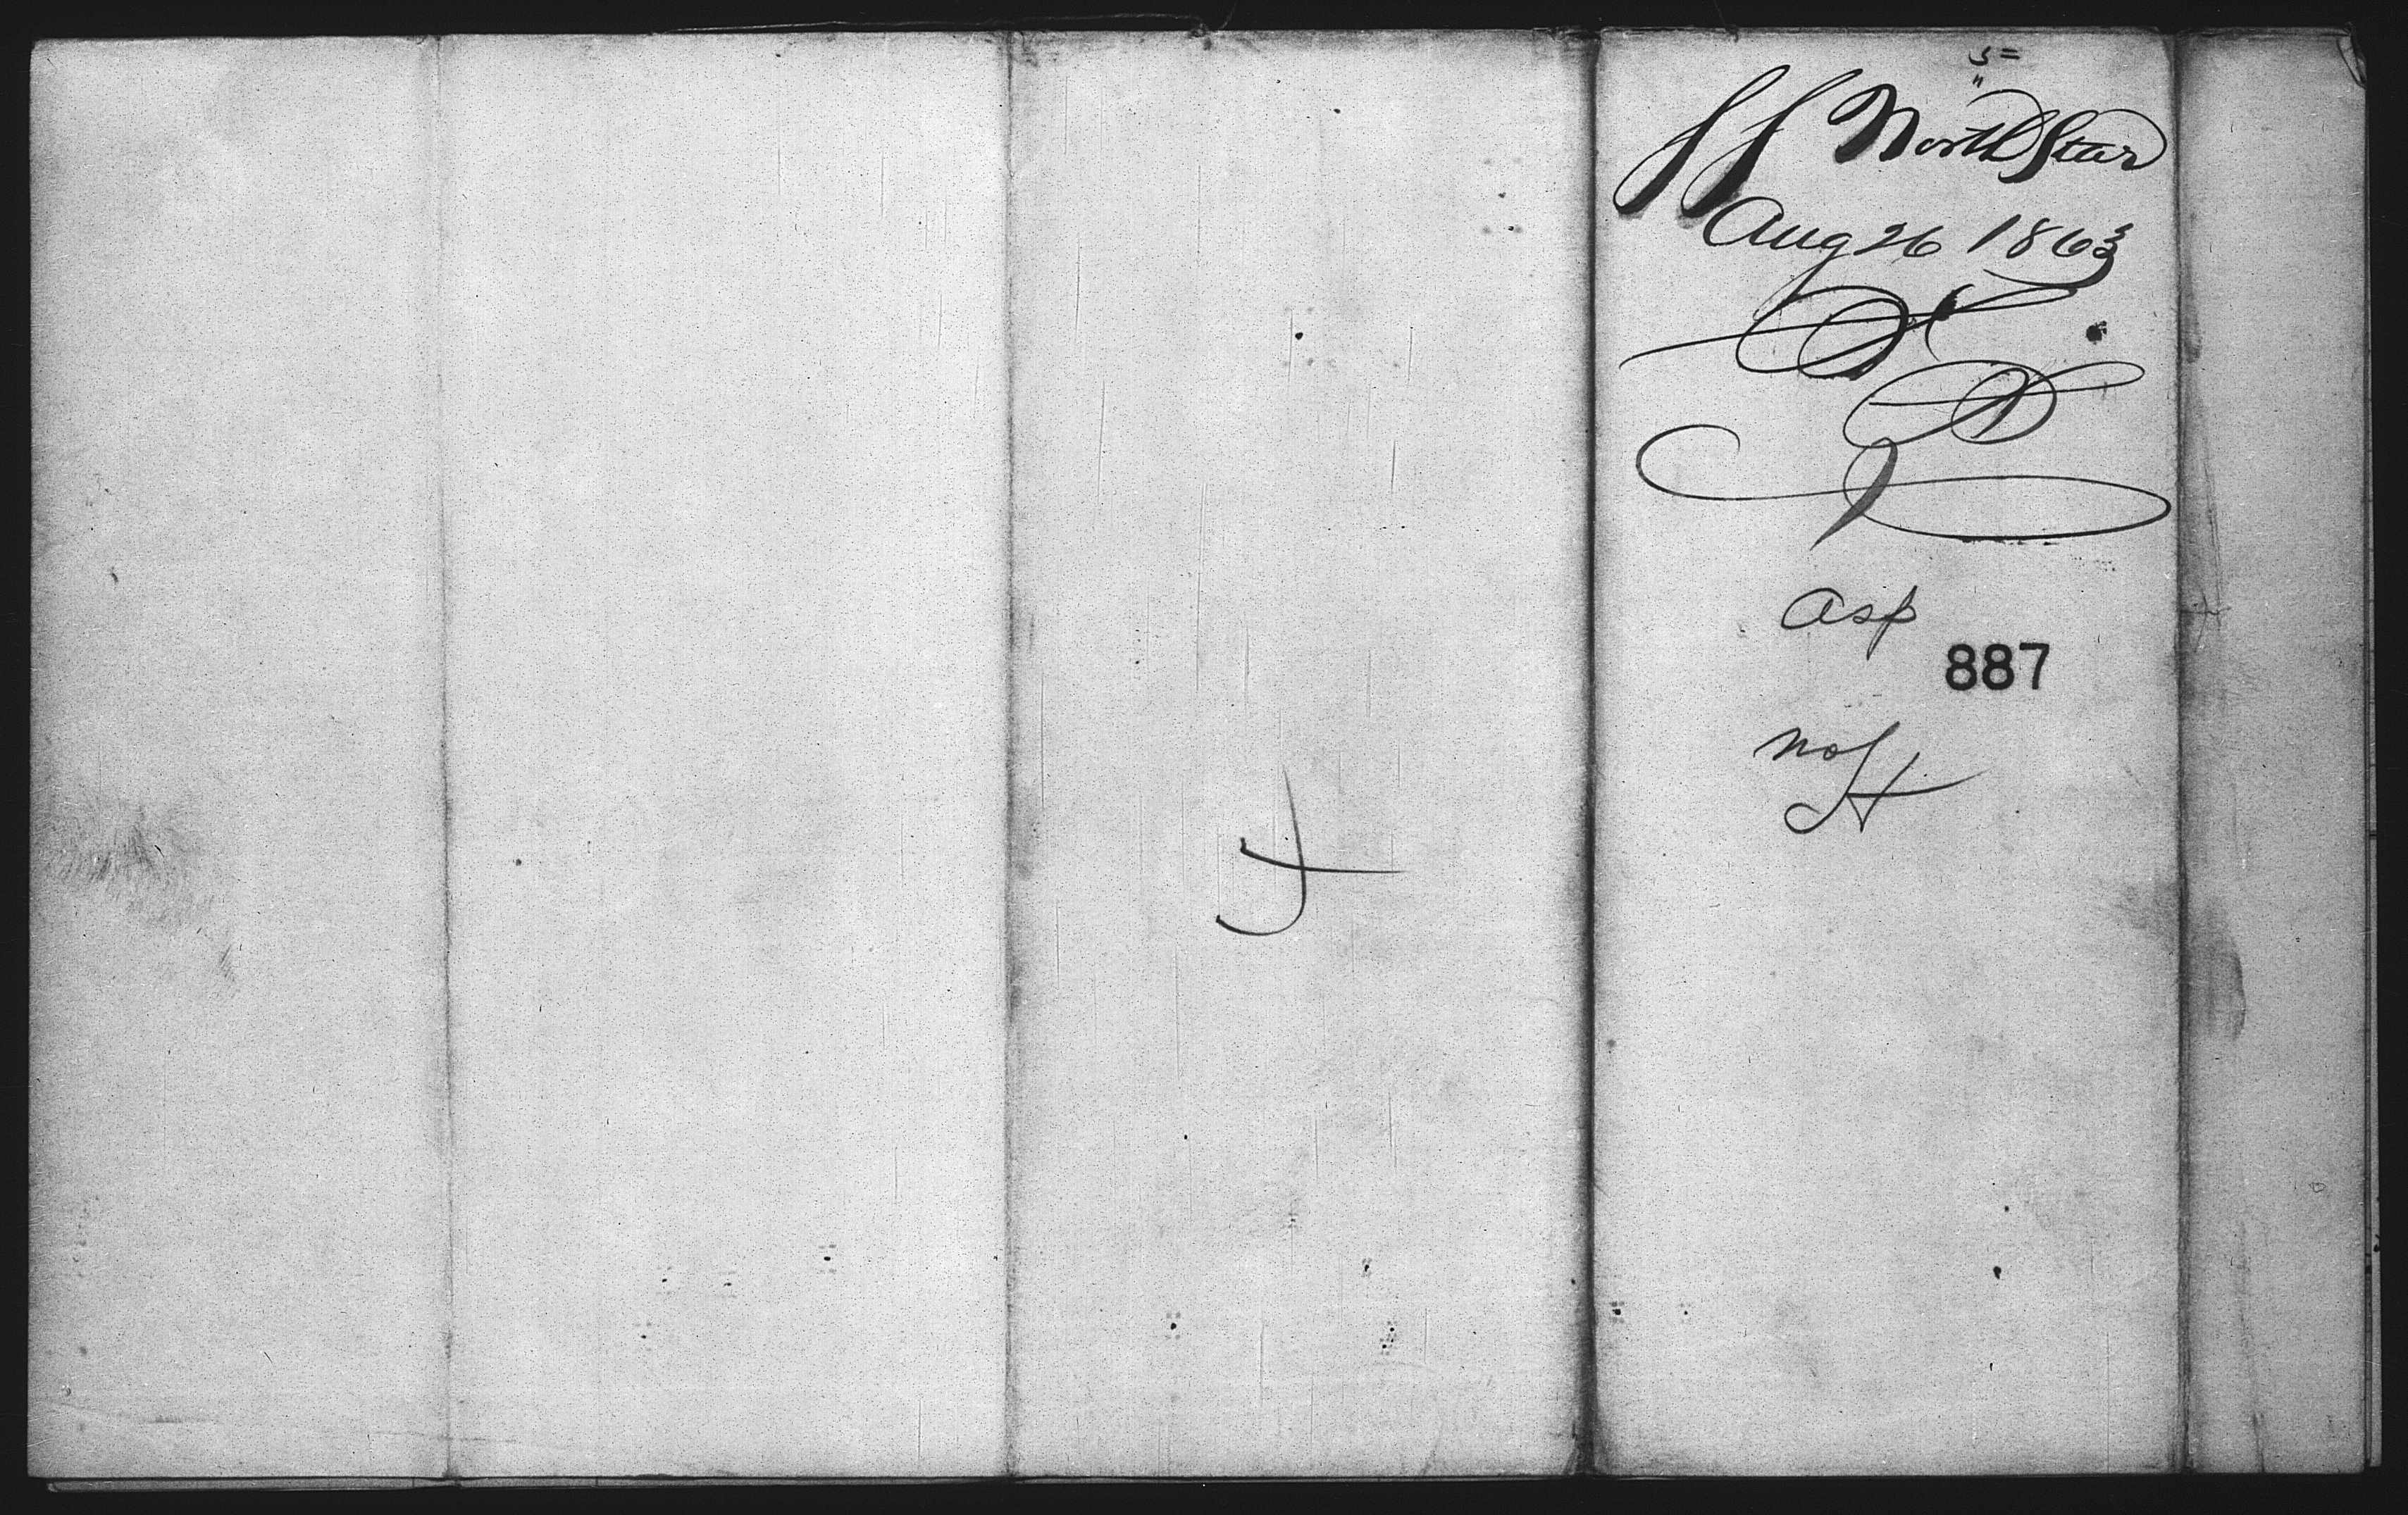 SS North Star
Aug 26 1863
Asp
887